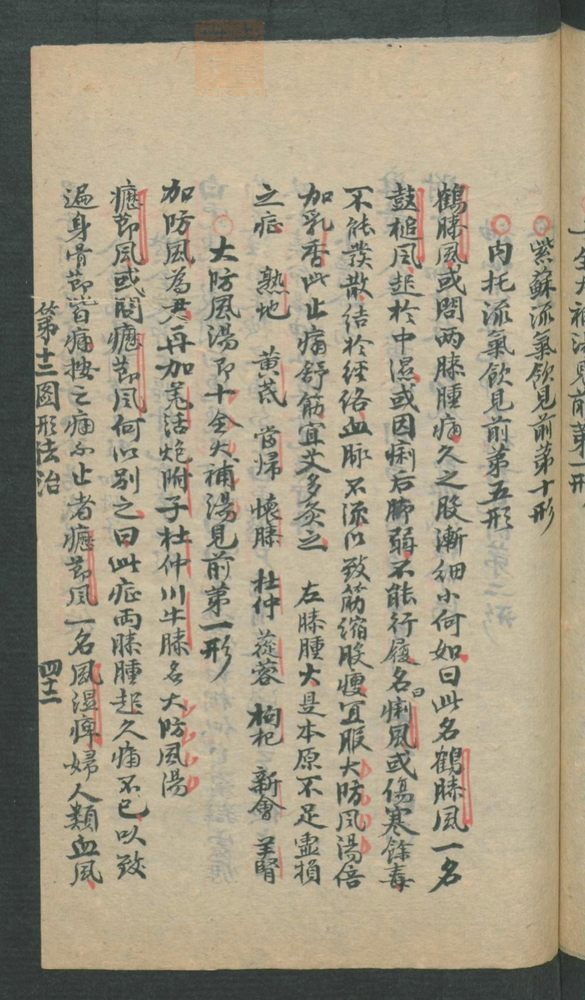 紫蘇流氣飲見前第十形
內托流氣飲見前第五形
鶴膝風或問兩膝腫痛久之股漸細小何如曰此名鶴膝風一名
鼓槌風起於中濕或因痢后脚弱不能行履名曰痢風或傷寒餘毒
不能發散結於經絡血脉不流以致筋縮股瘦宜服大防风湯倍
加乳香此止痛舒筋宜艾多灸之 左膝腫大是本原不足虛損
之症 熟地 黃芪 當歸 懷膝 杜仲 蓯蓉 枸杞 新會 羊腎
大防風湯即十全大補湯見前第一形
加防風為君再加羌活炮附子杜仲川牛膝名大防風湯
癧節風或問癧節風何以別之曰此症兩膝腫起久痛不已以致
遍身骨節皆痛按之痛不止者癧節風一名風濕痺婦人類血風
第十三圖形法治
四十二